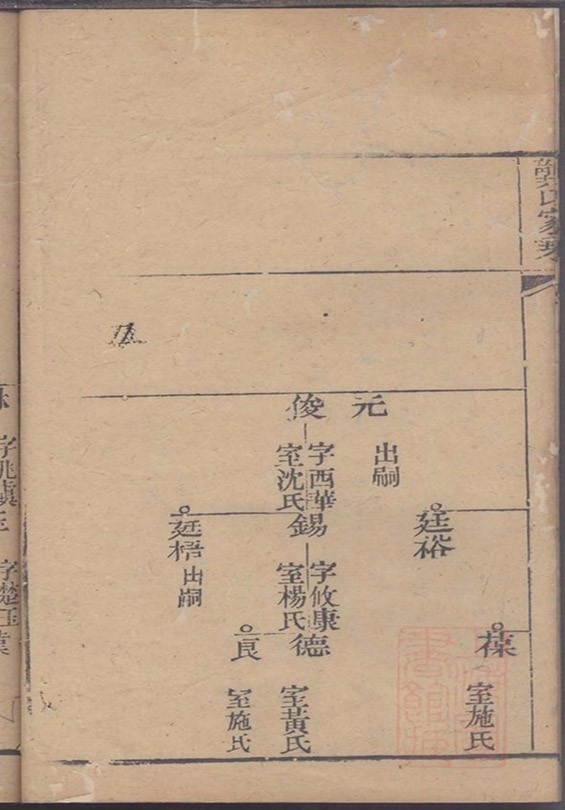 龔氏家乘
元
出嗣
俊
字西華
室沈氏
廷裕
錫
字攸康
室楊氏
廷梧
出嗣
葆
室施氏
德
室黃氏
良
室施氏